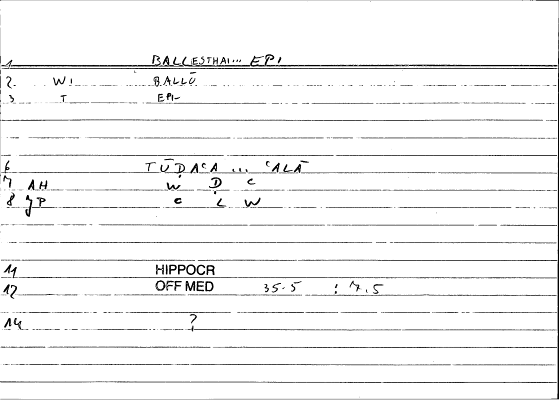 1 BALLESTHAI... EPI
2. WI BALLŌ
3. T EPI-
6 TŪḌAᶜA ... ᶜALĀ
7 AH W D C
8 JP C L W
11 HIPPOCR
12 OFF MED 35.5 : 7.5
14 ?